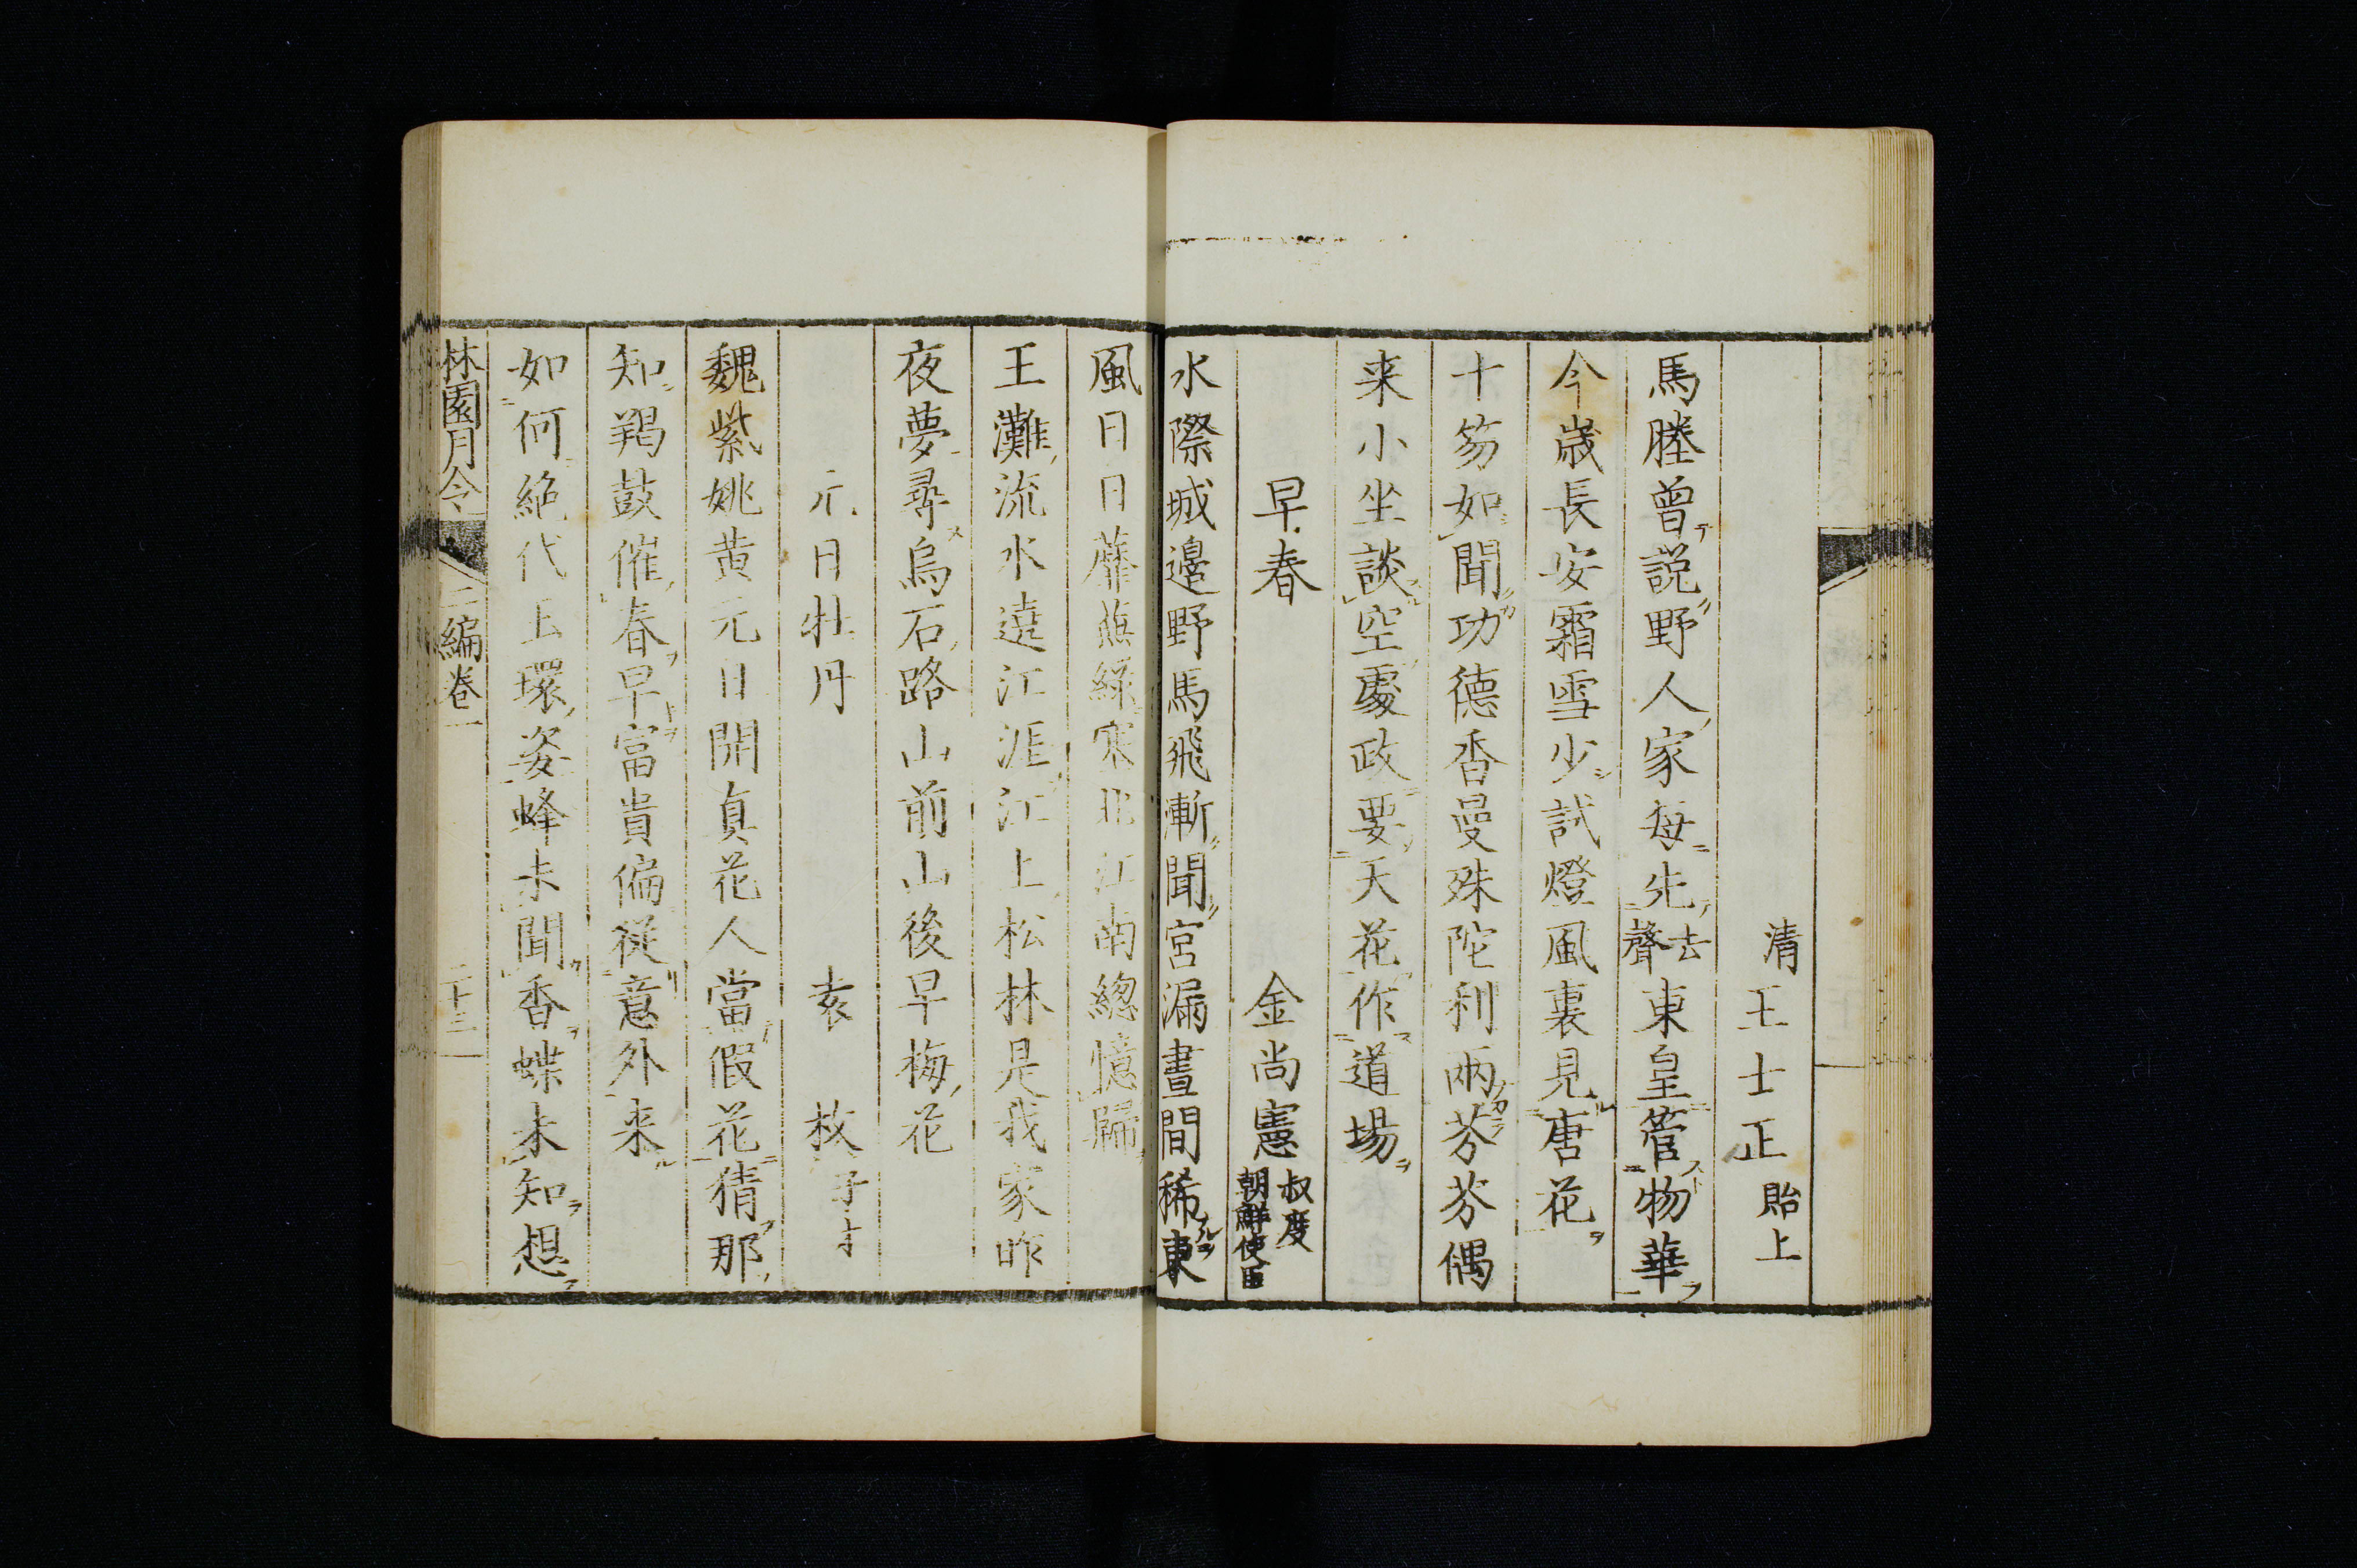 清王士正貽上
馬塍曾説野人家每先去聲東皇管物華
今歳長安霜雪少試燈風裏見唐花
十笏如聞功德香曼殊陀利兩芬芬偶
来小坐談空處政要天花作道場
早春　金尚憲叔度朝鮮使臣
水際城邊野馬飛漸聞宮漏晝間稀東
風日日蘼蕪緑塞北江南總憶歸
王灘流水遶江涯江上松林是我家昨
夜夢尋烏石路山前山後早梅花
元日牡丹　袁枚子才
魏紫姚黄元日開真花人當假花猜那
知羯鼓催春早富貴偏從意外来
如何絶代玉環姿蜂未聞香蝶未知想
林園月令　二編卷一　二十三